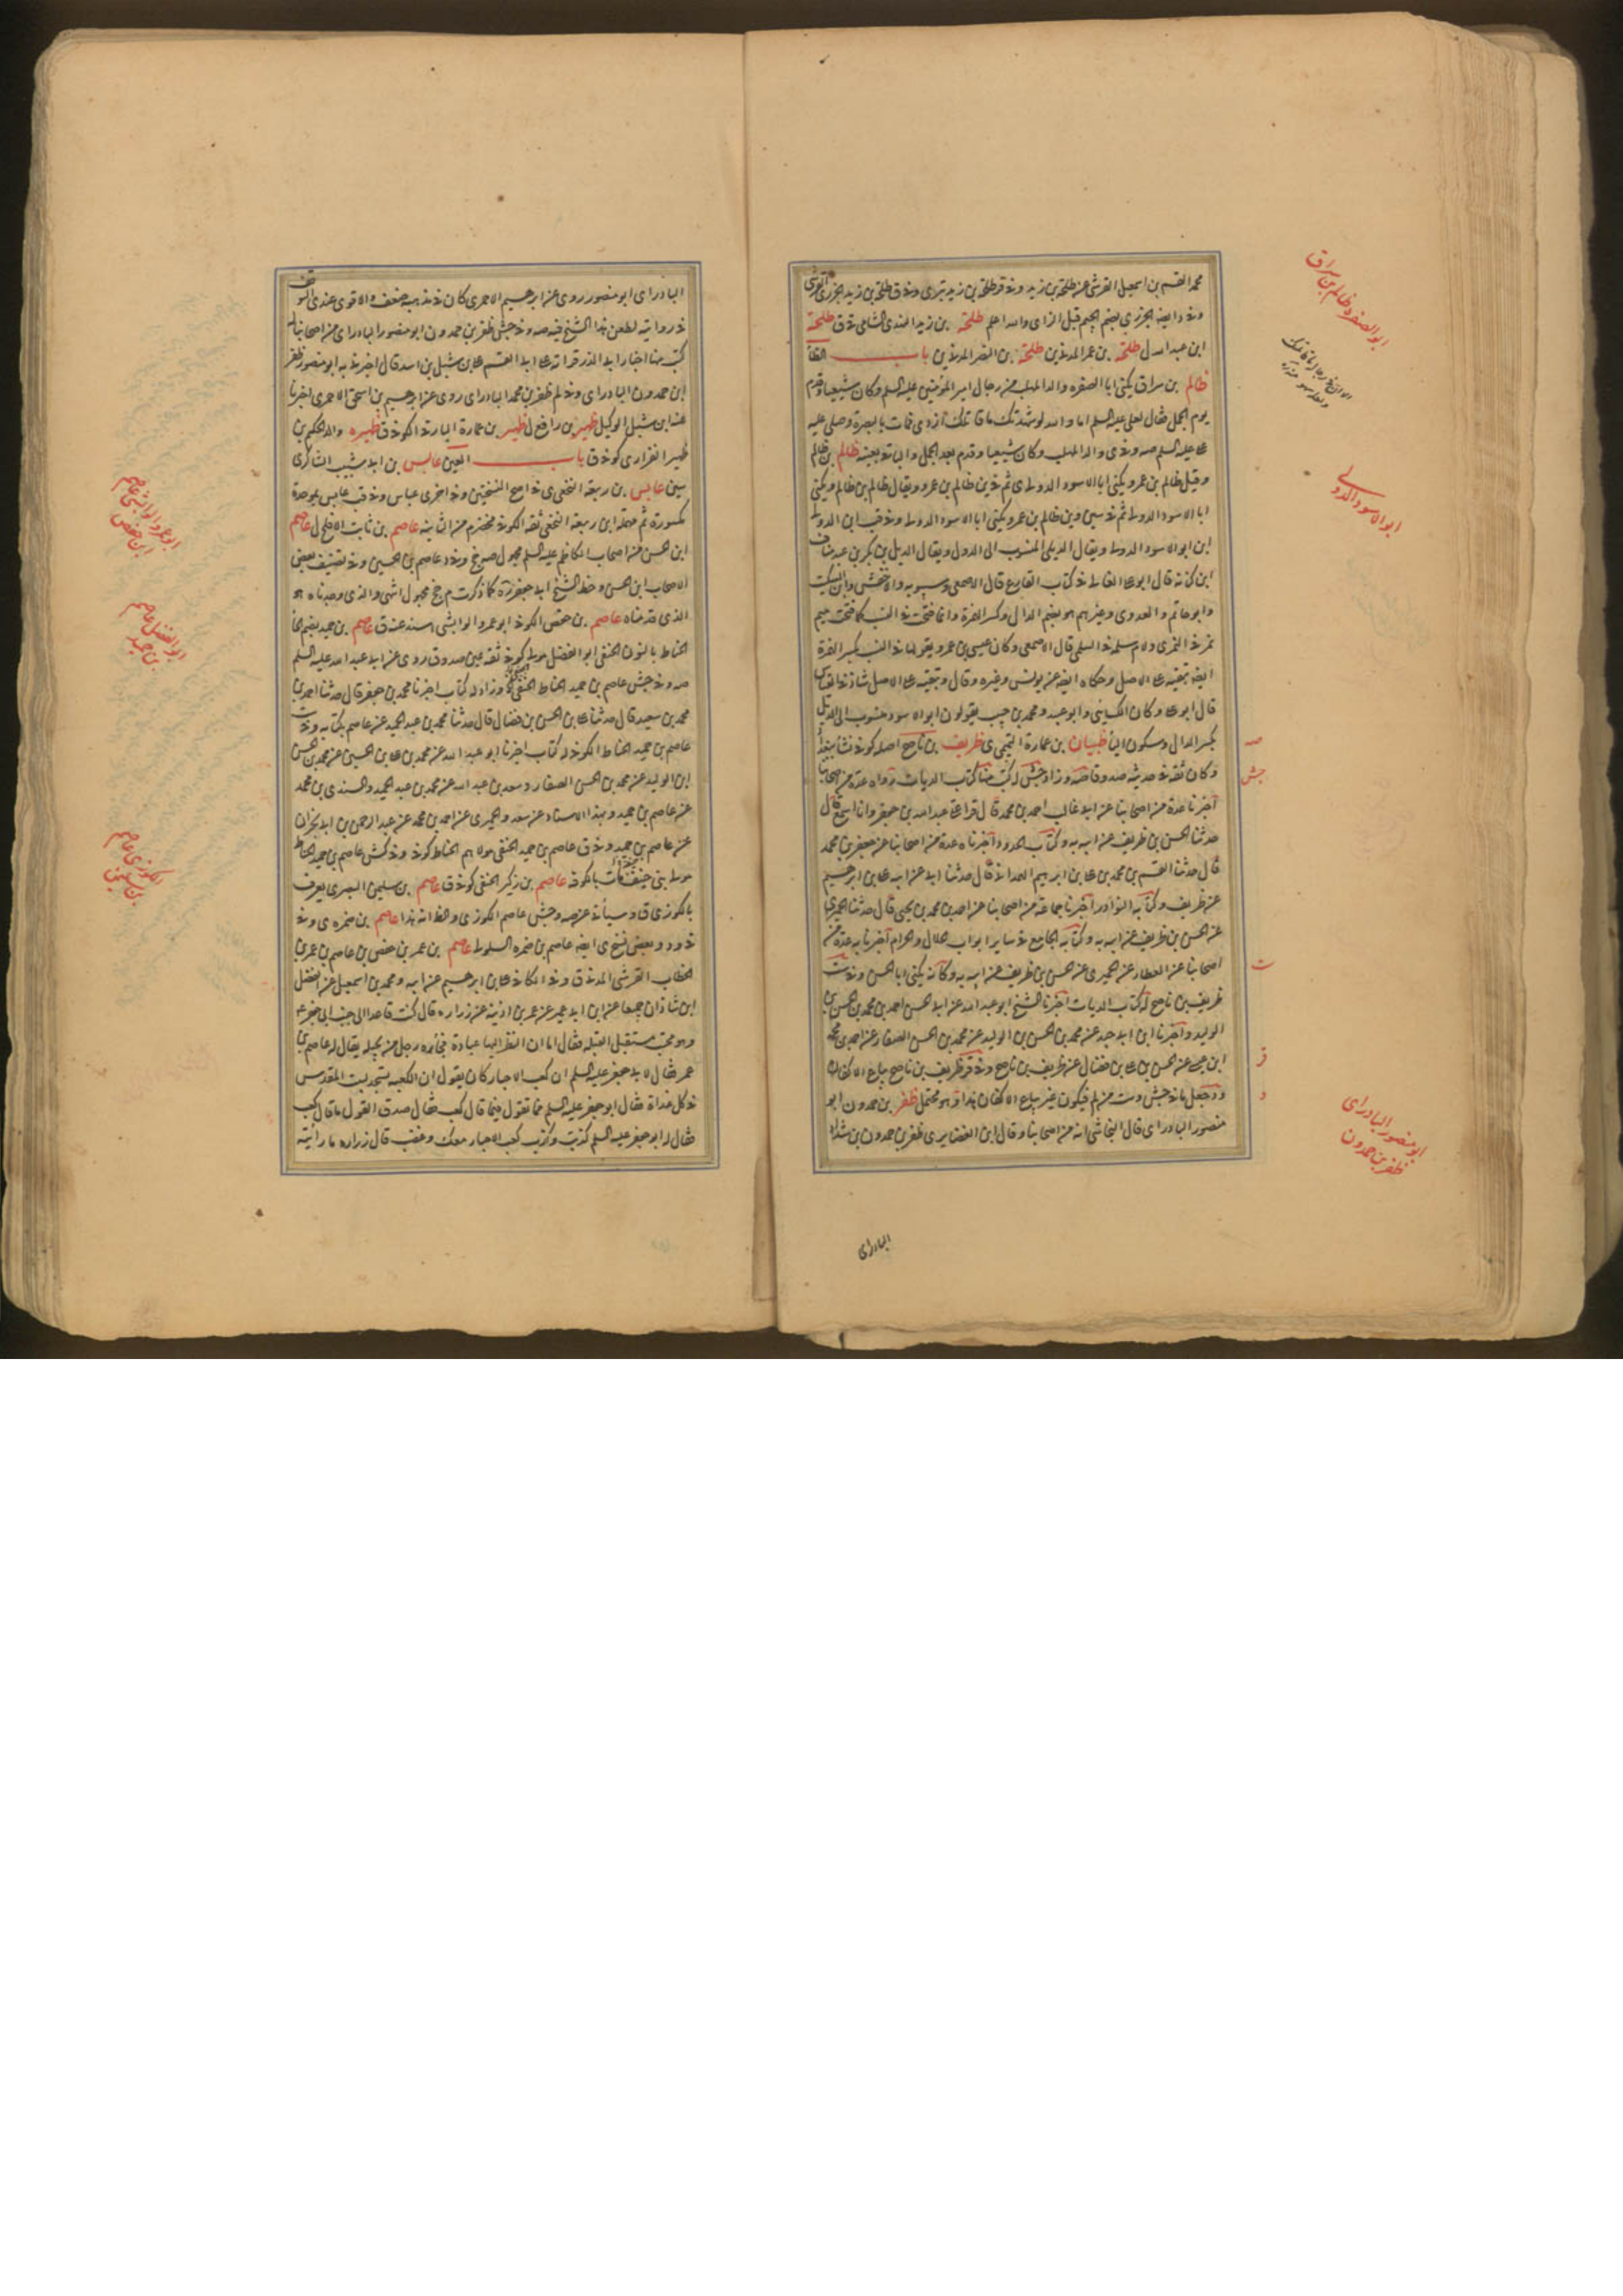 محمد القسم بن اسمعیل القرشی عنه طلحة بن زید
ایضه الجزری بضم الجیم قبل الزای والله اعلم طلحة بن زید الهندی الشامی ق طلحة
ابن عبد الله ل طلحة بن عمر المدنی ین طلحة بن النضر المدنی ین باب الظا
ظالم بن سراق یکنی ابا الصفره والد المهلب من رجال امیر المؤمنین علیه السلم وکان شیعیا وقدم
یوم الجمل فقال لعلی علیه السلم اما والله لو شهدتک ما قاتلک ازدی فمات بالبصرة وصلی علیه
علی علیه السلم والد المهلب وکان شیعیا وقدم بعد الجمل ظالم بن ظالم
وقیل ظالم بن عمرو یکنی ابا الاسود الدولی ظالم بن عمرو ویقال ظالم بن ظالم ویکنی
ابا الاسود الدولی ظالم بن عمرو یکنی ابا الاسود الدولی
ابن ابو الاسود الدولی ویقال الدیلی المنسوب الی الدول ویقال الدیل بن بکر بن عبد مناف
ابن کنانه قال ابو علی القالی فی کتاب البارع قال الاصمعی وسیبویه والاخفش وابن السکیت
وابو حاتم والعدوی وغیرهم هو بضم الدال وکسر الهمزة وانما فتحت فی النسب کما فتحت میم
نمر فی النمری ولام سلمه فی السلمی قال الاصمعی وکان عیسی بن عمر یقولها فی النسب بکسر الهمزة
ایضه تبقیه علی الاصل وحکاه ایضه عن یونس وغیره وقال وتبقیه علی الاصل شاذ فی القیاس
قال ابو علی وکان الکسائی وابو عبید ومحمد بن حبیب یقولون ابو الاسود منسوب الی الدیل
بکسر الدال وسکون الیا ظبیان بن عمارة التمیمی ی ظریف بن ناصح اصله کوفی نشا ببغداد
وکان ثقه فی حدیثه صدوقا وزاد جش له کتب منها کتاب الدیات رواه عدة من اصحابنا
اخبرنا عدة من اصحابنا عن ابی غالب احمد بن محمد قال قرا علی عبد الله بن جعفر وانا اسمع قال
حدثنا الحسن بن ظریف عن ابیه به وکتاب الحدود اخبرناه عدة من اصحابنا عن جعفر بن محمد
قال حدثنا القسم بن محمد بن علی بن ابرهیم الهمدانی قال حدثنا ابی عن ابیه علی بن ابرهیم
عن ظریف وکتابه النوادر اخبرنا جماعة من اصحابنا عن احمد بن محمد بن یحیی قال حدثنا الحمیری
عن الحسن بن ظریف عن ابیه به وکتابه الجامع فی سایر ابواب الحلال والحرام اخبرنا به عدة من
اصحابنا عن العطار عن الحمیری عن الحسن بن ظریف عن ابیه به وکانه یکنی ابا الحسن
ظریف بن ناصح له کتاب الدیات اخبرنا الشیخ ابو عبد الله عن ابی الحسن احمد بن محمد بن الحسن بن
الولید واخبرنا ابن ابی جید عن محمد بن الحسن بن الولید عن محمد بن الحسن الصفار عن احمد بن محمد
ابن عن الحسن بن علی بن فضال عن ظریف بن ناصح وفی قر ظریف بن ناصح بیاع الاکفان
فیکون غیر بیاع الاکفان هذا وهو محتمل ظفر بن حمدون ابو
منصور البادرای قال النجاشی انه من اصحابنا وقال ابن الغضایری ظفر بن حمدون بن شداد
البادرای
ابو الصفره ظالم بن سراق
ابو الاسود الدولی
صه
جش
ت
قر
د
ابو منصور البادرای
ظفر بن حمدون
البادرای ابو منصور روی عن ابرهیم الاحمری کان فی مذهبه ضعف والاقوی عندی التوقف
فی روایته لطعن هذا الشیخ فیه صه وفی جش ظفر بن حمدون ابو منصور البادرای من اصحابنا له
کتب منها اخبار ابی ذر قراته علی ابی القسم علی بن شبل بن اسد قال اخبرنا به ابو منصور ظفر
ابن حمدون البادرای وفی لم ظفر بن محمد البادرای روی عن ابرهیم بن اسحق الاحمری اخبرنا
عنه ابن شبل الوکیل ظهیر بن رافع ل ظهیر بن عمارة البارقی الکوفی ق ظهیره والد الحکم بن
ظهیر الفزاری کوفی ق باب العین عابس بن ابی شبیب الشاکری
سین عابس بن ربیعة النخعی ی فی اصح النسختین وفی اخری عباس وفی قب عابس بموحدة
مکسورة ثم مهملة ابن ربیعة النخعی ثقه الکوفی مخضرم من الثانیه عاصم بن ثابت الافلح ل عاصم
ابن الحسن من اصحاب الکاظم علیه السلم مجهول صه وفی د عاصم بن الحسین وفی تصنیف بعض
الاصحاب ابن الحسن وخط الشیخ ابی جعفر کما ذکرت م جخ مجهول انتهی والذی وجدناه هو
الذی قدمناه عاصم بن حفص الکوفی ابو عمرو الوابشی اسند عنه ق عاصم بن حمید بضم الحا
الحناط بالنون الحنفی ابو الفضل مولی کوفی ثقه عین صدوق روی عن ابی عبد الله علیه السلم
صه وفی جش عاصم بن حمید الحناط الحنفی وزاد له کتاب اخبرنا محمد بن جعفر قال حدثنا احمد بن
محمد بن سعید قال حدثنا علی بن الحسن بن فضال قال حدثنا محمد بن عبد الحمید عن عاصم بکتابه وفی ست
عاصم بن حمید الحناط الکوفی له کتاب اخبرنا ابو عبد الله عن محمد بن علی بن الحسین عن محمد بن الحسن
ابن الولید عن محمد بن الحسن الصفار وسعد بن عبد الله عن محمد بن عبد الحمید والسندی بن محمد
عن عاصم بن حمید وبهذا الاسناد عن سعد والحمیری عن احمد بن محمد عن عبد الرحمن بن ابی نجران
عن عاصم بن حمید وفی ق عاصم بن حمید الحنفی مولاهم الحناط کوفی وفی کش عاصم بن حمید الحناط
مولی بنی حنیفه مات بالکوفه عاصم بن زکیر الحنفی کوفی ق عاصم بن سلیمن البصری یعرف
بالکوزی ق وسیاتی عن صه وجش عاصم الکوزی والظ انه هذا عاصم بن ضمره ی وفی
د وبعض نسخ ی ایضه عاصم بن ضمره السلولی عاصم بن عمر بن حفص بن عاصم بن عمر بن
الخطاب القرشی المدنی ق وفی الکافی علی بن ابرهیم عن ابیه ومحمد بن اسمعیل عن الفضل
ابن شاذان جمیعا عن ابن ابی عمیر عن عمر بن اذینه عن زراره قال کنت قاعدا الی جنب ابی جعفر ع
وهو محتب مستقبل القبله فقال اما ان النظر الیها عبادة فجاءه رجل من بجیله یقال له عاصم بن
عمر فقال لابی جعفر علیه السلم ان کعب الاحبار کان یقول ان الکعبه تسجد لبیت المقدس
فی کل غداة فقال ابو جعفر علیه السلم فما تقول فیما قال کعب فقال صدق القول ما قال کعب
فقال له ابو جعفر علیه السلم کذبت وکذب کعب الاحبار معک وغضب قال زراره ما رایته
ابو عمرو الوابشی عاصم
ابن حفص
ابو الفضل عاصم
بن حمید
الکوزی عاصم
بن سلیمن